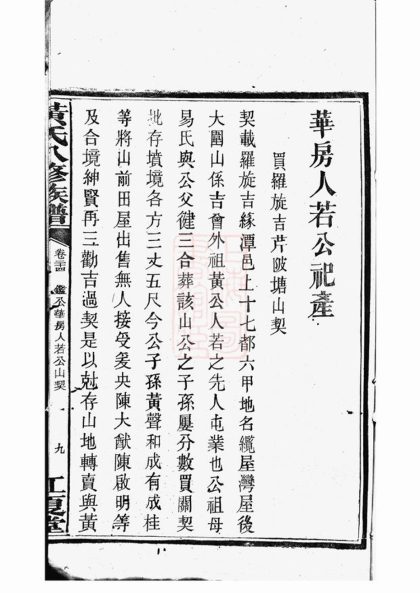 華房人若公祀產
買羅旋吉芹陂塘山契
契載羅旋吉緣潭邑上十七都六甲地名纜屋灣屋後
大圍山係吉會外祖黃公人若之先人屯業也公祖母
易氏與公父健三合葬該山公之子孫屢分數買關契
批存墳境各方三丈五尺今公子孫黃聲和成有成桂
等將山前田屋出售無人接受爰央陳大猷陳啟明等
及合境紳賢再三勸吉過契是以尅存山地轉賣與黃
黃氏八修族譜
卷三十四
鑑公華房人若公山契
九
江夏堂